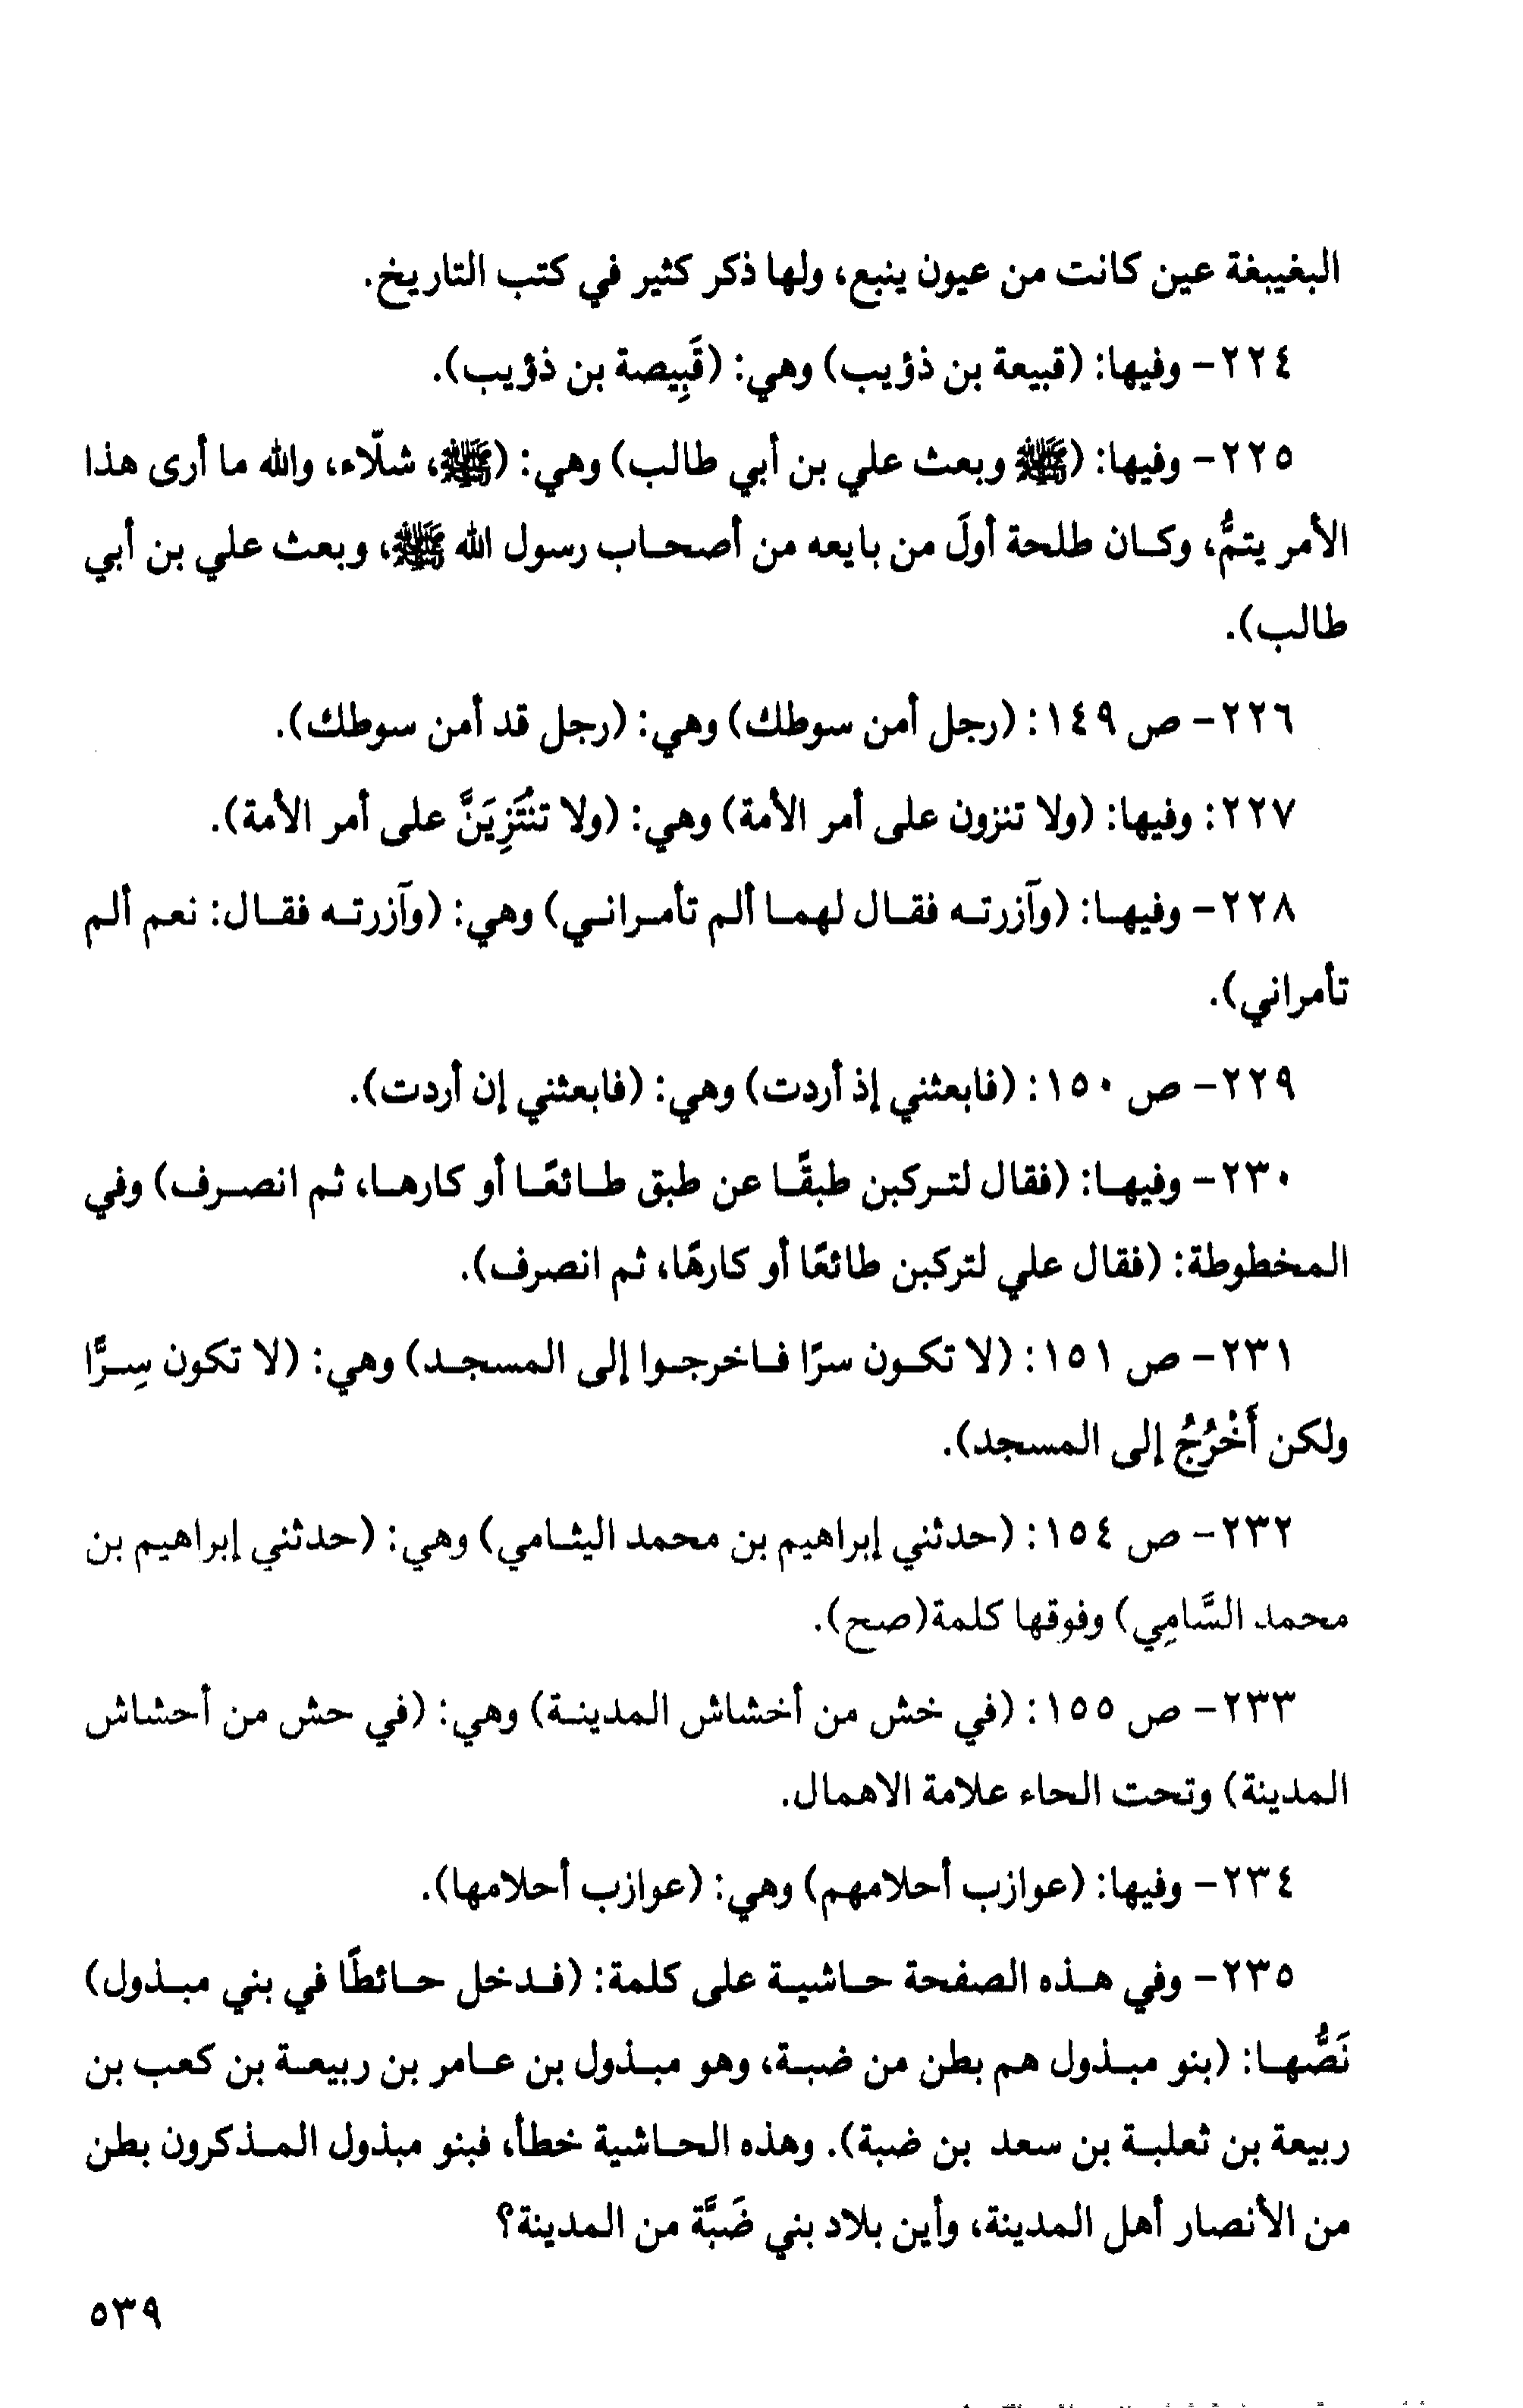 البغيبغة عين كانت من عيون ينبع، ولها ذكر كثير في كتب التاريخ.
٢٢٤- وفيها: (قبيعة بن ذؤيب) وهي: (قَبِيصة بن ذؤيب).
٢٢٥- وفيها: (ﷺ وبعث علي بن أبي طالب) وهي: (ﷺ، شلّاء، والله ما أرى هذا
الأمر يتمُّ، وكان طلحة أولَ من بايعه من أصحاب رسول الله ﷺ، وبعث علي بن أبي
طالب).
٢٢٦- ص ١٤٩: (رجل أمن سوطك) وهي: (رجل قد أمن سوطك).
٢٢٧: وفيها: (ولا تنزون على أمر الأمة) وهي: (ولا تنْتَزِيَنَّ على أمر الأمة).
٢٢٨- وفيها: (وآزرته فقال لهما ألم تأمراني) وهي: (وآزرته فقال: نعم ألم
تأمراني).
٢٢٩- ص ١٥٠: (فابعثني إذ أردت) وهي: (فابعثني إن أردت).
٢٣٠- وفيها: (فقال لتركبن طبقًا عن طبق طائعًا أو كارها، ثم انصرف) وفي
المخطوطة: (فقال علي لتركبن طائعًا أو كارهًا، ثم انصرف).
٢٣١- ص ١٥١: (لا تكون سرًا فاخرجوا إلى المسجد) وهي: (لا تكون سِرًّا
ولكن أَخْرُجُ إلى المسجد).
٢٣٢- ص ١٥٤: (حدثني إبراهيم بن محمد اليثامي) وهي: (حدثني إبراهيم بن
محمد السَّامِي) وفوقها كلمة(صح).
٢٣٣- ص ١٥٥: (في خش من أخشاش المدينة) وهي: (في حش من أحشاش
المدينة) وتحت الحاء علامة الاهمال.
٢٣٤- وفيها: (عوازب أحلامهم) وهي: (عوازب أحلامها).
٢٣٥- وفي هذه الصفحة حاشية على كلمة: (فدخل حائطًا في بني مبذول)
نَصُّها: (بنو مبذول هم بطن من ضبة، وهو مبذول بن عامر بن ربيعة بن كعب بن
ربيعة بن ثعلبة بن سعد بن ضبة). وهذه الحاشية خطأ، فبنو مبذول المذكرون بطن
من الأنصار أهل المدينة، وأين بلاد بني ضَبَّة من المدينة؟
٥٣٩